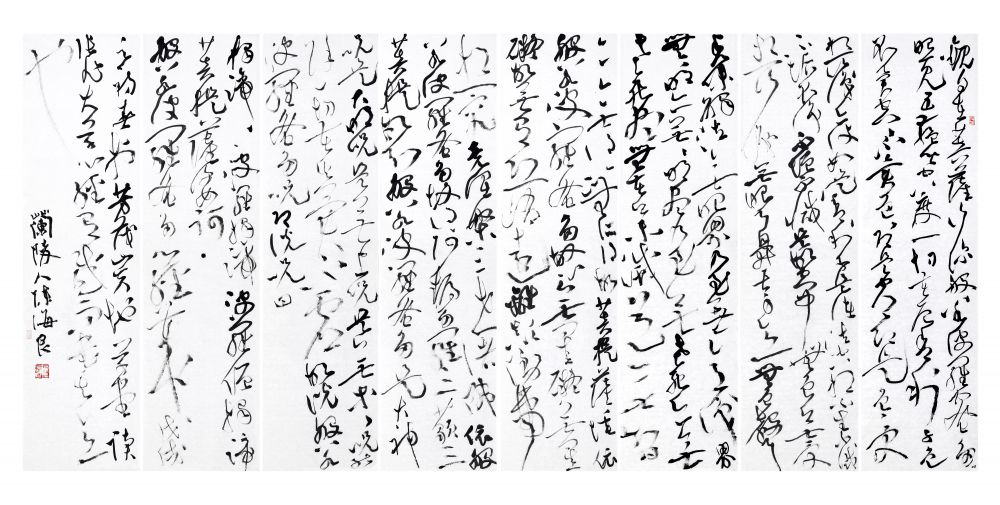 觀自在菩薩行深般若波羅蜜多時
照見五蘊皆空度一切苦厄舍利子色不
異空空不異色色即是空空即是色受
想行識亦復如是舍利子是諸法空相不生不滅
不垢不淨不增不減是故空中無色無受
想行識無眼耳鼻舌身意無色聲
香味觸法無眼界乃至無意識界
無無明亦無無明盡乃至無老死亦無
老死盡無苦集滅道無智亦無得
以無所得故菩提薩埵依
般若波羅蜜多故心無罣礙無罣
礙故無有恐怖遠離顛倒夢想
究竟涅槃三世諸佛依般
若波羅蜜多故得阿耨多羅三藐三
菩提故知般若波羅蜜多是大神
咒是大明咒是無上咒是無等等咒能
除一切苦真實不虛故說般若
波羅蜜多咒即說咒曰
揭諦揭諦波羅揭諦波羅僧揭諦
菩提薩婆訶
般若波羅蜜多心經
蘭陵人陳海良